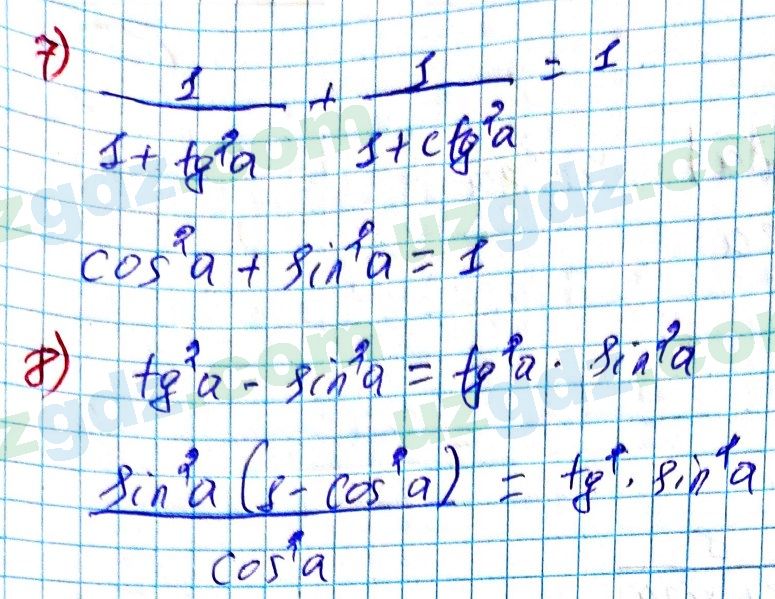 7) 1/(1+tg²a) + 1/(1+ctg²a) = 1
cos²a + sin²a = 1
8) tg²a - sin²a = tg²a · sin²a
sin²a(1-cos²a)/cos²a = tg² · sin²a
uzgdz.com